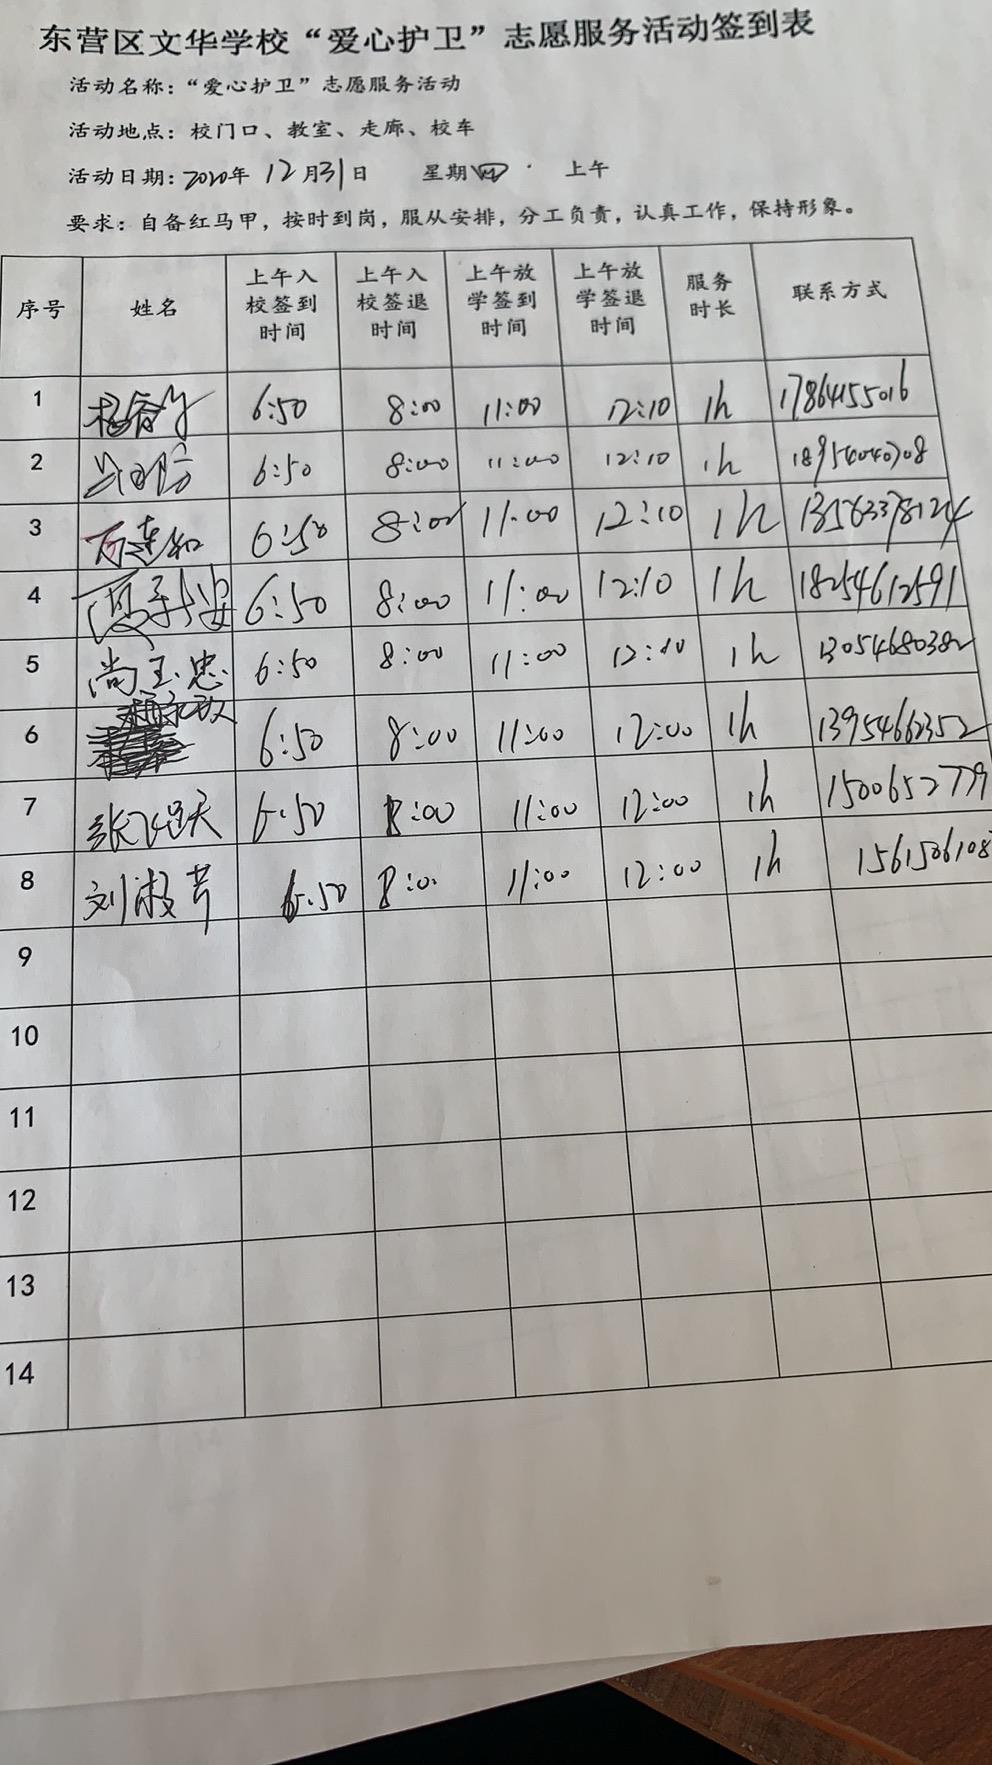 东营区文华学校“爱心护卫”志愿服务活动签到表
活动名称：“爱心护卫”志愿服务活动
活动地点：校门口、教室、走廊、校车
活动日期：2020年 12月31日 星期四 上午
要求：自备红马甲，按时到岗，服从安排，分工负责，认真工作，保持形象。
序号 姓名 上午入校签到时间 上午入校签退时间 上午放学签到时间 上午放学签退时间 服务时长 联系方式
1 6:50 8:00 11:00 12:10 1h 17864155016
2 6:50 8:00 11:00 12:10 1h
3 6:50 8:00 11:00 12:10 1h 13563378124
4 6:50 8:00 11:00 12:10 1h 18254612591
5 尚玉忠 6:50 8:00 11:00 12:10 1h 13054680382
6 6:50 8:00 11:00 12:00 1h 13954662352
7 6:50 8:00 11:00 12:00 1h 1500652779
8 刘淑芹 6:50 8:00 11:00 12:00 1h 1561506108
9
10
11
12
13
14